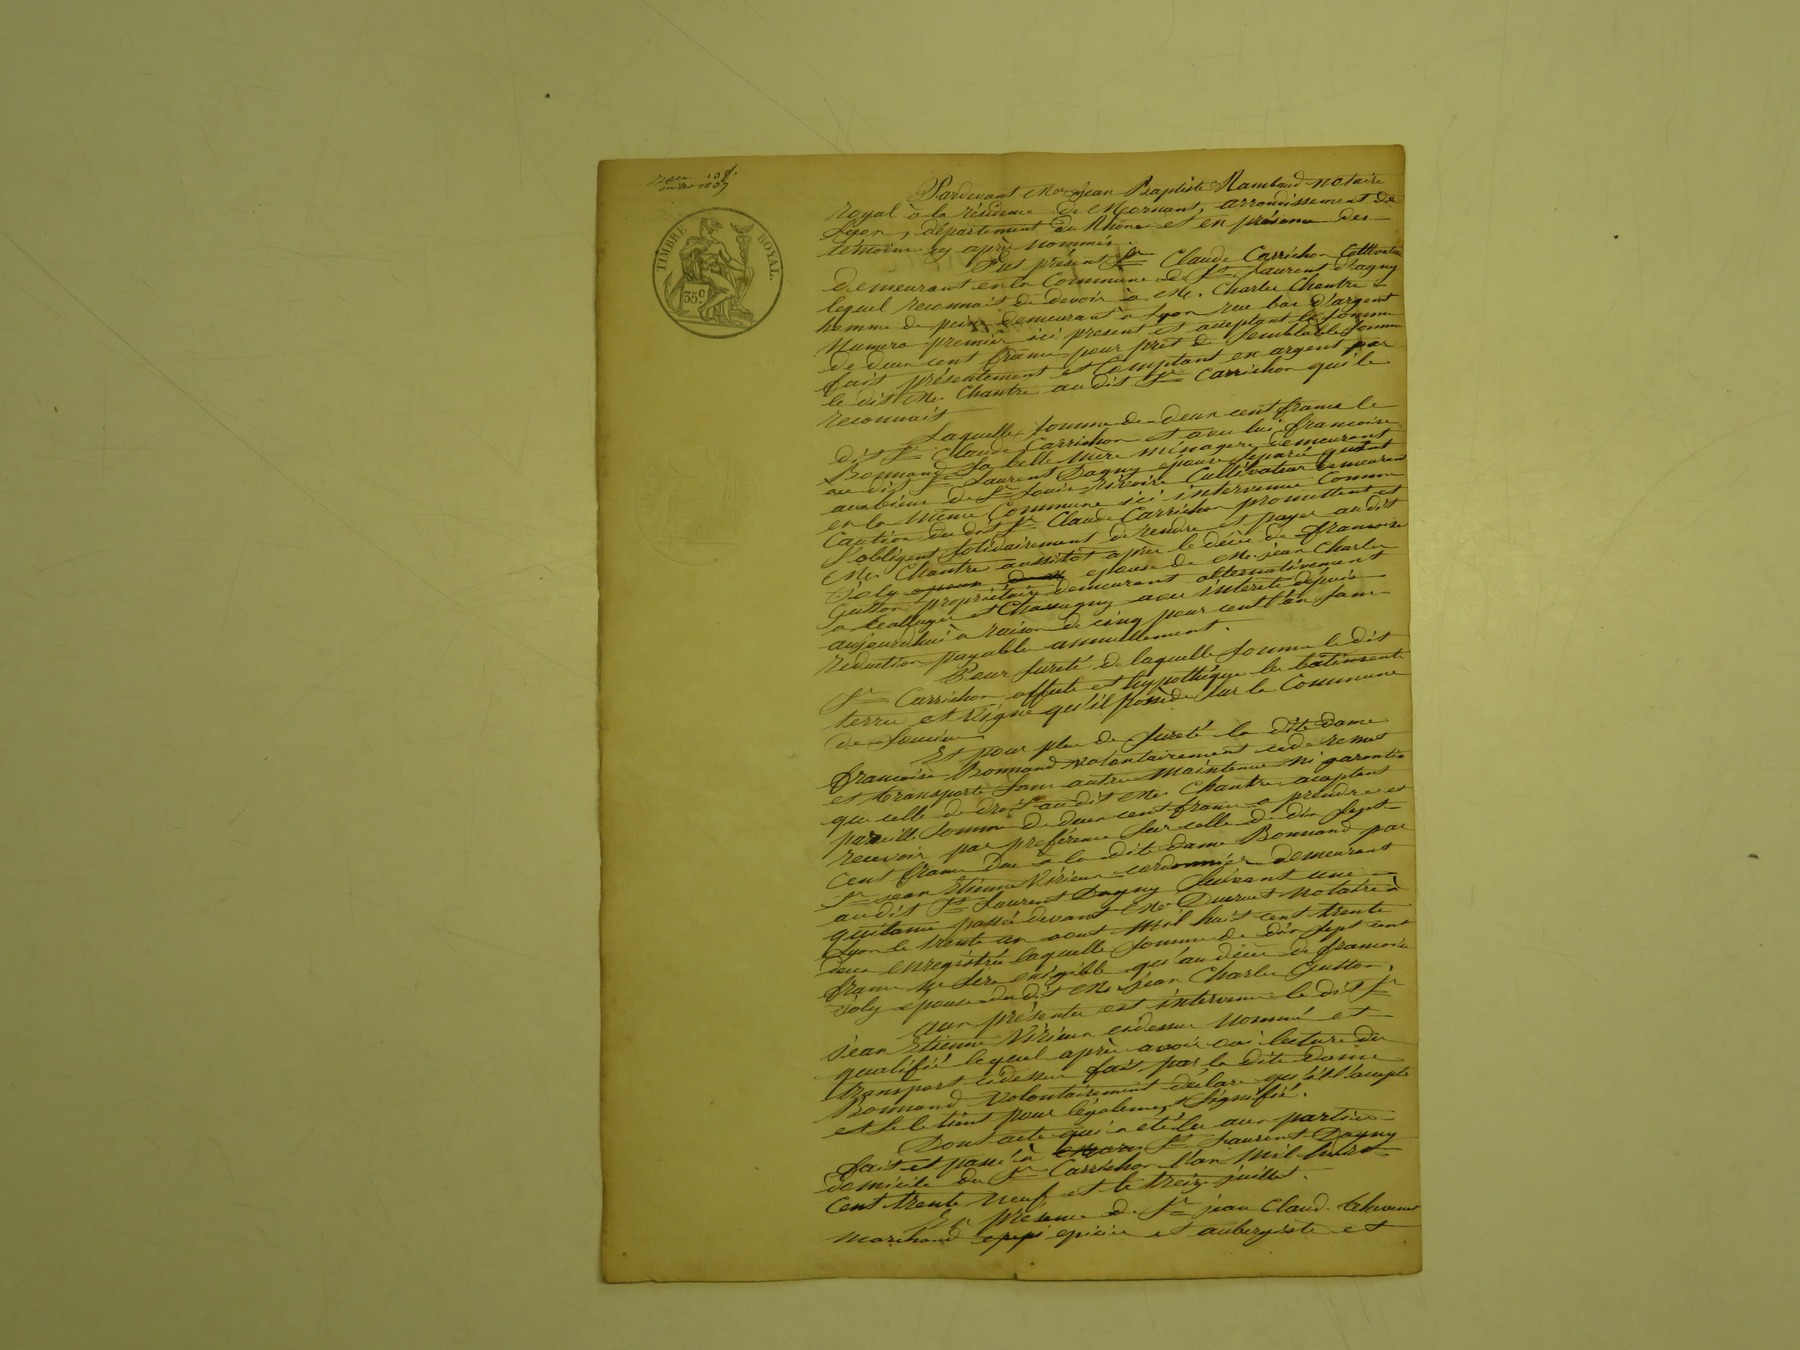 TIMBRE ROYAL.
35 c.
Pardevant Me jean Baptiste Rambaud notaire
royal à la résidence de Mornant, arrondissement de
Lyon, département du Rhône et en présence des
témoins cy après nommés.
Fut présent Sr Claude Carrichon Cultivateur
demeurant en la Commune de St Laurent d'agny
lequel reconnait de devoir à Mr. Charles Chantre
homme de peine demeurant à Lyon rue bas d'argent
Numero premier ici présent et acceptant la somme
de deux cent francs pour prêt de semblable somme
fait présentement et Comptant en argent par
le dit Mr. Chantre au dit Sr Carrichon qui le
reconnait
Laquelle somme de deux cent francs le
dit Sr Claude Carrichon et avec lui francoise
Bonnand sa belle mère ménagere demeurant
au dit St Laurent Dagny épouse separée quant
aux biens de Sr Louis Rivoire Cultivateur demeurant
en la même Commune ici intervenue Comme
Caution du dit Sr Claude Carrichon promettent et
s'obligent solidairement de rendre et payer au dit
Mr. Chantre aussitôt après le décès de francoise
Joly epouse de Mr jean Charles
Gutton propriétaire demeurant alternativement
a et Chassagny avec intérêt depuis
aujourdhui à raison de cinq pour cent l'an sans
réduction payable annuellement.
Pour sureté de laquelle somme le dit
Sr Carrichon affecte et hypothéque les batiments
terres et vigne qu'il possède sur la Commune
de Soucieu
Et pour plus de sureté la dite dame
francoise Bonnand volontairement cede remet
et transporte sans autre Maintenue ni garantie
que celle de droit au dit Mr Chantre acceptant
pareille somme de deux cent francs a prendre et
recevoir par preférence sur celle de dix sept
cent francs due a la dite dame Bonnand par
Sr jean Etienne Virieux cordonnier demeurant
au dit St Laurent Dagny suivant une
quitance passée devant Me Ducruet notaire à
Lyon le trente un aout Mil huit cent trente
deux enregistrée laquelle somme de dix sept cent
francs ne sera exigible qu'au décès de francoise
Joly epouse du dit Mr jean Charles Gutton.
aux présentes est intervenu le dit Sr
jean Etienne Virieux cidessus nommé et
qualifié lequel après avoir oui lecture du
transport cidessus fait par la dite dame
Bonnand volontairement déclare qu'il l'accepte
et se le tient pour légalement signifié.
Dont acte qui a été lu aux parties
fait et passé à St Laurent Dagny
domicile du Sr Carrichon l'an Mil huit
Cent trente neuf et le treize juillet.
En présence de Sr jean Claude thevenet
Marchand epicier et aubergiste et